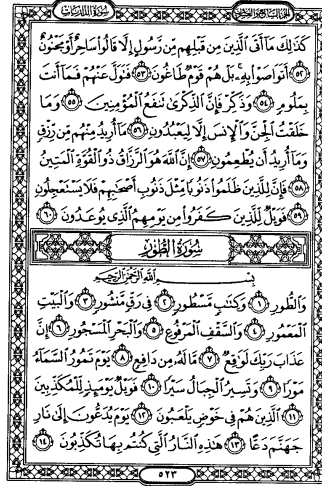 الجزء السابع والعشرون
سورة الذاريات
كَذَٰلِكَ مَا أَتَى الَّذِينَ مِن قَبْلِهِم مِّن رَّسُولٍ إِلَّا قَالُوا سَاحِرٌ أَوْ مَجْنُونٌ
٥٢ أَتَوَاصَوْا بِهِ ۚ بَلْ هُمْ قَوْمٌ طَاغُونَ ٥٣ فَتَوَلَّ عَنْهُمْ فَمَا أَنتَ
بِمَلُومٍ ٥٤ وَذَكِّرْ فَإِنَّ الذِّكْرَىٰ تَنفَعُ الْمُؤْمِنِينَ ٥٥ وَمَا
خَلَقْتُ الْجِنَّ وَالْإِنسَ إِلَّا لِيَعْبُدُونِ ٥٦ مَا أُرِيدُ مِنْهُم مِّن رِّزْقٍ
وَمَا أُرِيدُ أَن يُطْعِمُونِ ٥٧ إِنَّ اللَّهَ هُوَ الرَّزَّاقُ ذُو الْقُوَّةِ الْمَتِينُ
٥٨ فَإِنَّ لِلَّذِينَ ظَلَمُوا ذَنُوبًا مِّثْلَ ذَنُوبِ أَصْحَابِهِمْ فَلَا يَسْتَعْجِلُونِ
٥٩ فَوَيْلٌ لِّلَّذِينَ كَفَرُوا مِن يَوْمِهِمُ الَّذِي يُوعَدُونَ ٦٠
سورة الطور
بِسْمِ اللَّهِ الرَّحْمَٰنِ الرَّحِيمِ
وَالطُّورِ ١ وَكِتَابٍ مَّسْطُورٍ ٢ فِي رَقٍّ مَّنشُورٍ ٣ وَالْبَيْتِ
الْمَعْمُورِ ٤ وَالسَّقْفِ الْمَرْفُوعِ ٥ وَالْبَحْرِ الْمَسْجُورِ ٦ إِنَّ
عَذَابَ رَبِّكَ لَوَاقِعٌ ٧ مَّا لَهُ مِن دَافِعٍ ٨ يَوْمَ تَمُورُ السَّمَاءُ
مَوْرًا ٩ وَتَسِيرُ الْجِبَالُ سَيْرًا ١٠ فَوَيْلٌ يَوْمَئِذٍ لِّلْمُكَذِّبِينَ
١١ الَّذِينَ هُمْ فِي خَوْضٍ يَلْعَبُونَ ١٢ يَوْمَ يُدَعُّونَ إِلَىٰ نَارِ
جَهَنَّمَ دَعًّا ١٣ هَٰذِهِ النَّارُ الَّتِي كُنتُم بِهَا تُكَذِّبُونَ ١٤
٥٢٣